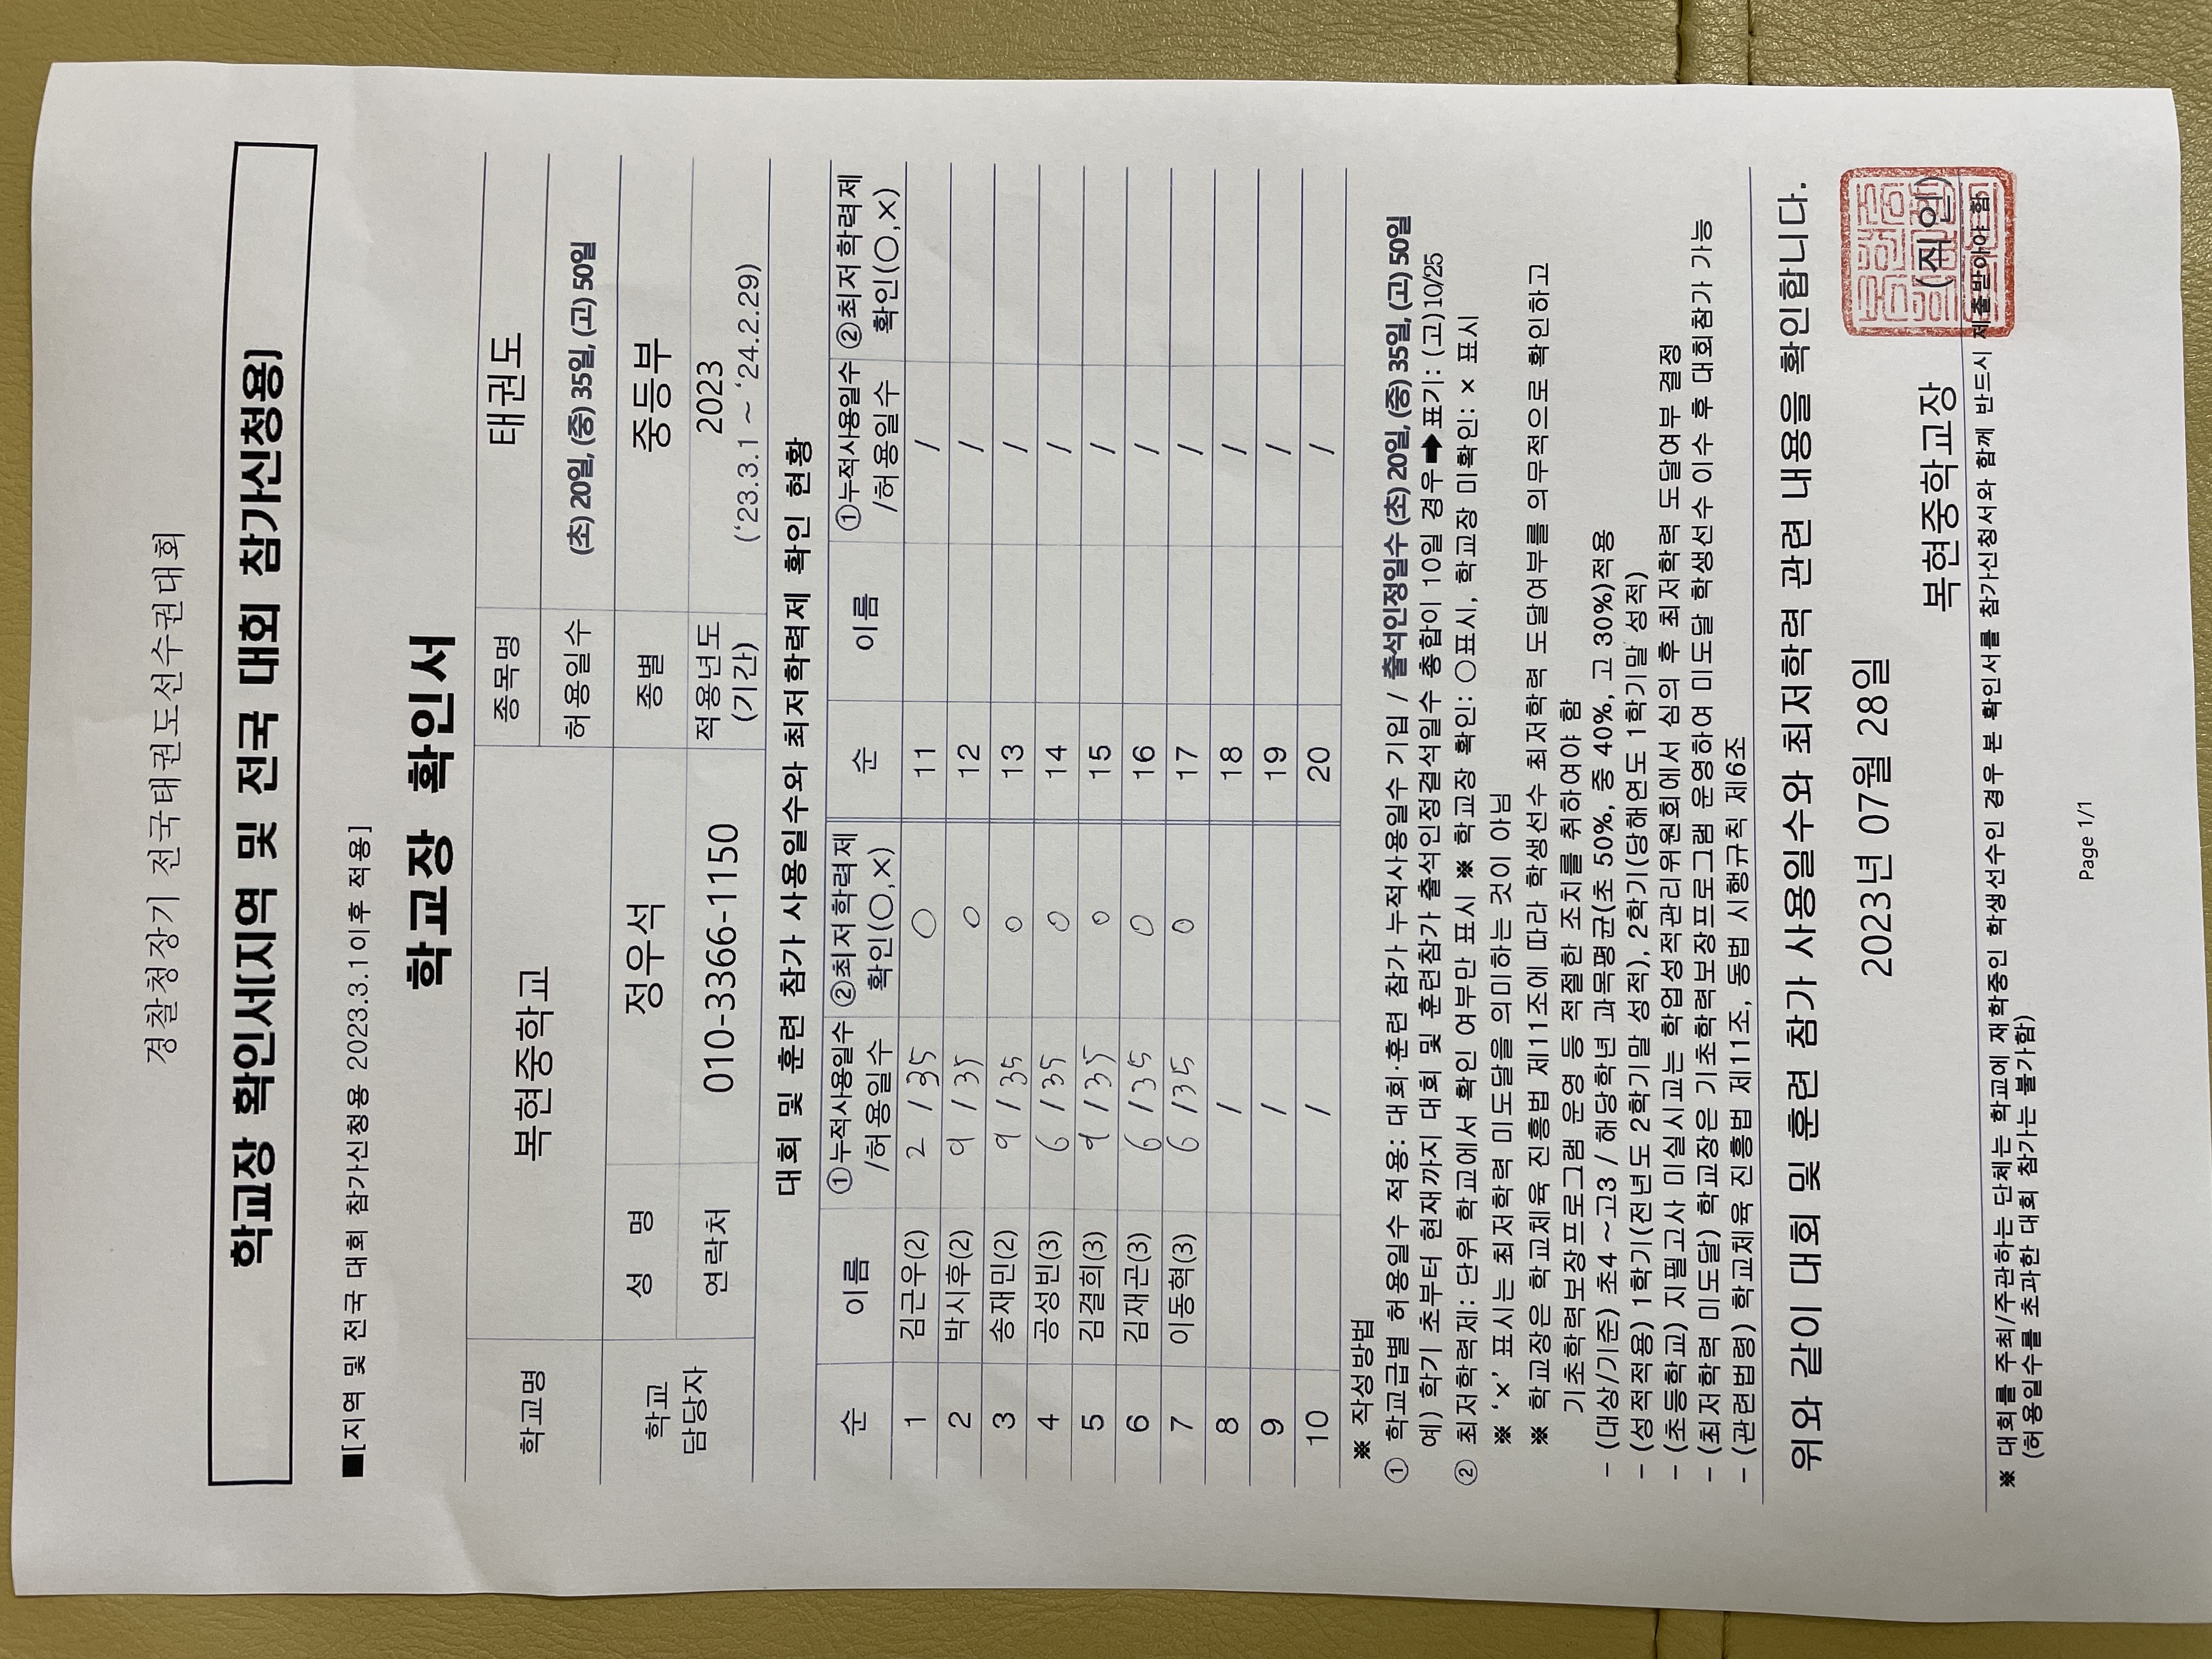 경찰청장기 전국태권도선수권대회
학교장 확인서(지역 및 전국 대회 참가신청용)
■[지역 및 전국 대회 참가신청용 2023.3.1이후 적용]
학교장 확인서
학교명 복현중학교 종목명 태권도
허용일수 (초) 20일, (중) 35일, (고) 50일
학교 담당자 성 명 정우석 종별 중등부
연락처 010-3366-1150 적용년도 (기간) 2023 (‘23.3.1 ~ ‘24.2.29)
대회 및 훈련 참가 사용일수와 최저학력제 확인 현황
순 이름 ①누적사용일수 /허용일수 ②최저학력제 확인(○,×) 순 이름 ①누적사용일수 /허용일수 ②최저학력제 확인(○,×)
1 김근우(2) 2 / 35 ○ 11 /
2 박시후(2) 9 / 35 ○ 12 /
3 송재민(2) 9 / 35 ○ 13 /
4 공성빈(3) 6 / 35 ○ 14 /
5 김결희(3) 9 / 35 ○ 15 /
6 김재곤(3) 6 / 35 ○ 16 /
7 이동혁(3) 6 / 35 ○ 17 /
8 / 18 /
9 / 19 /
10 / 20 /
※ 작성방법
① 학교급별 허용일수 적용: 대회·훈련 참가 누적사용일수 기입 / 출석인정일수 (초) 20일, (중) 35일, (고) 50일
예) 학기 초부터 현재까지 대회 및 훈련참가 출석인정결석일수 총합이 10일 경우 ➡ 표기: (고)10/25
② 최저학력제: 단위 학교에서 확인 여부만 표시 ※ 학교장 확인: ○표시, 학교장 미확인: × 표시
※ ‘×’ 표시는 최저학력 미도달을 의미하는 것이 아님
※ 학교장은 학교체육 진흥법 제11조에 따라 학생선수 최저학력 도달여부를 의무적으로 확인하고
기초학력보장프로그램 운영 등 적절한 조치를 취하여야 함
- (대상/기준) 초4 ~고3 / 해당학년 과목평균(초 50%, 중 40%, 고 30%)적용
- (성적적용) 1학기(전년도 2학기말 성적), 2학기(당해연도 1학기말 성적)
- (초등학교) 지필고사 미실시교는 학업성적관리위원회에서 심의 후 최저학력 도달여부 결정
- (최저학력 미도달) 학교장은 기초학력보장프로그램 운영하여 미도달 학생선수 이수 후 대회참가 가능
- (관련법령) 학교체육 진흥법 제11조, 동법 시행규칙 제6조
위와 같이 대회 및 훈련 참가 사용일수와 최저학력 관련 내용을 확인합니다.
2023년 07월 28일
복현중학교장 (직인)
※ 대회를 주최/주관하는 단체는 학교에 재학중인 학생선수인 경우 본 확인서를 참가신청서와 함께 반드시 제출받아야 함
(허용일수를 초과한 대회 참가는 불가함)
Page 1/1